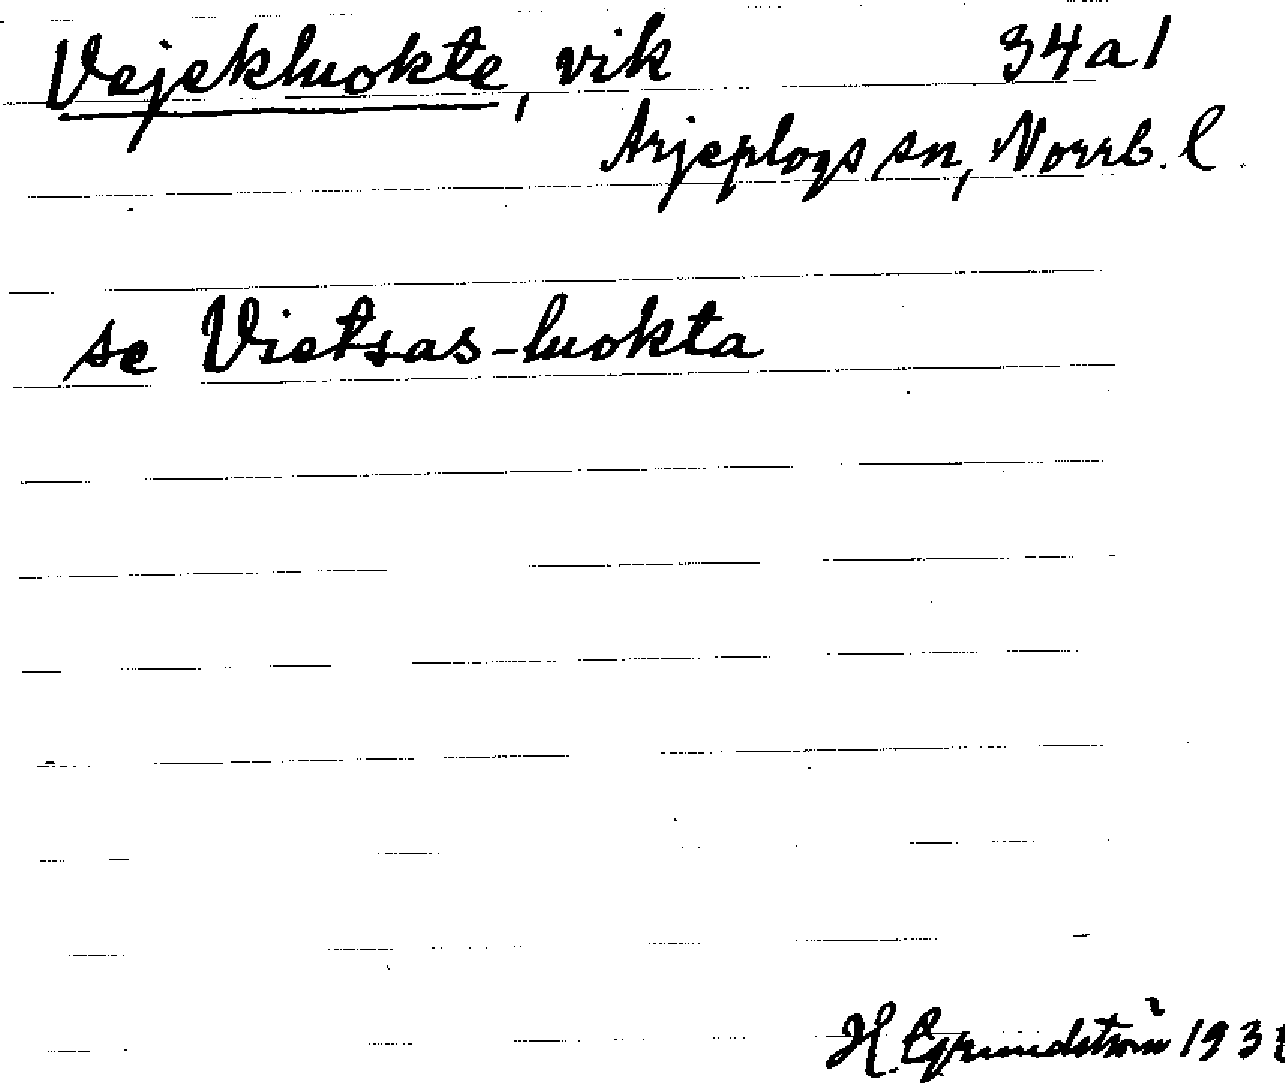 Vejekluokte, vik 34a1
Arjeplogs sn, Norrb. l.
se Vietsas-luokta
H. Grundström 193